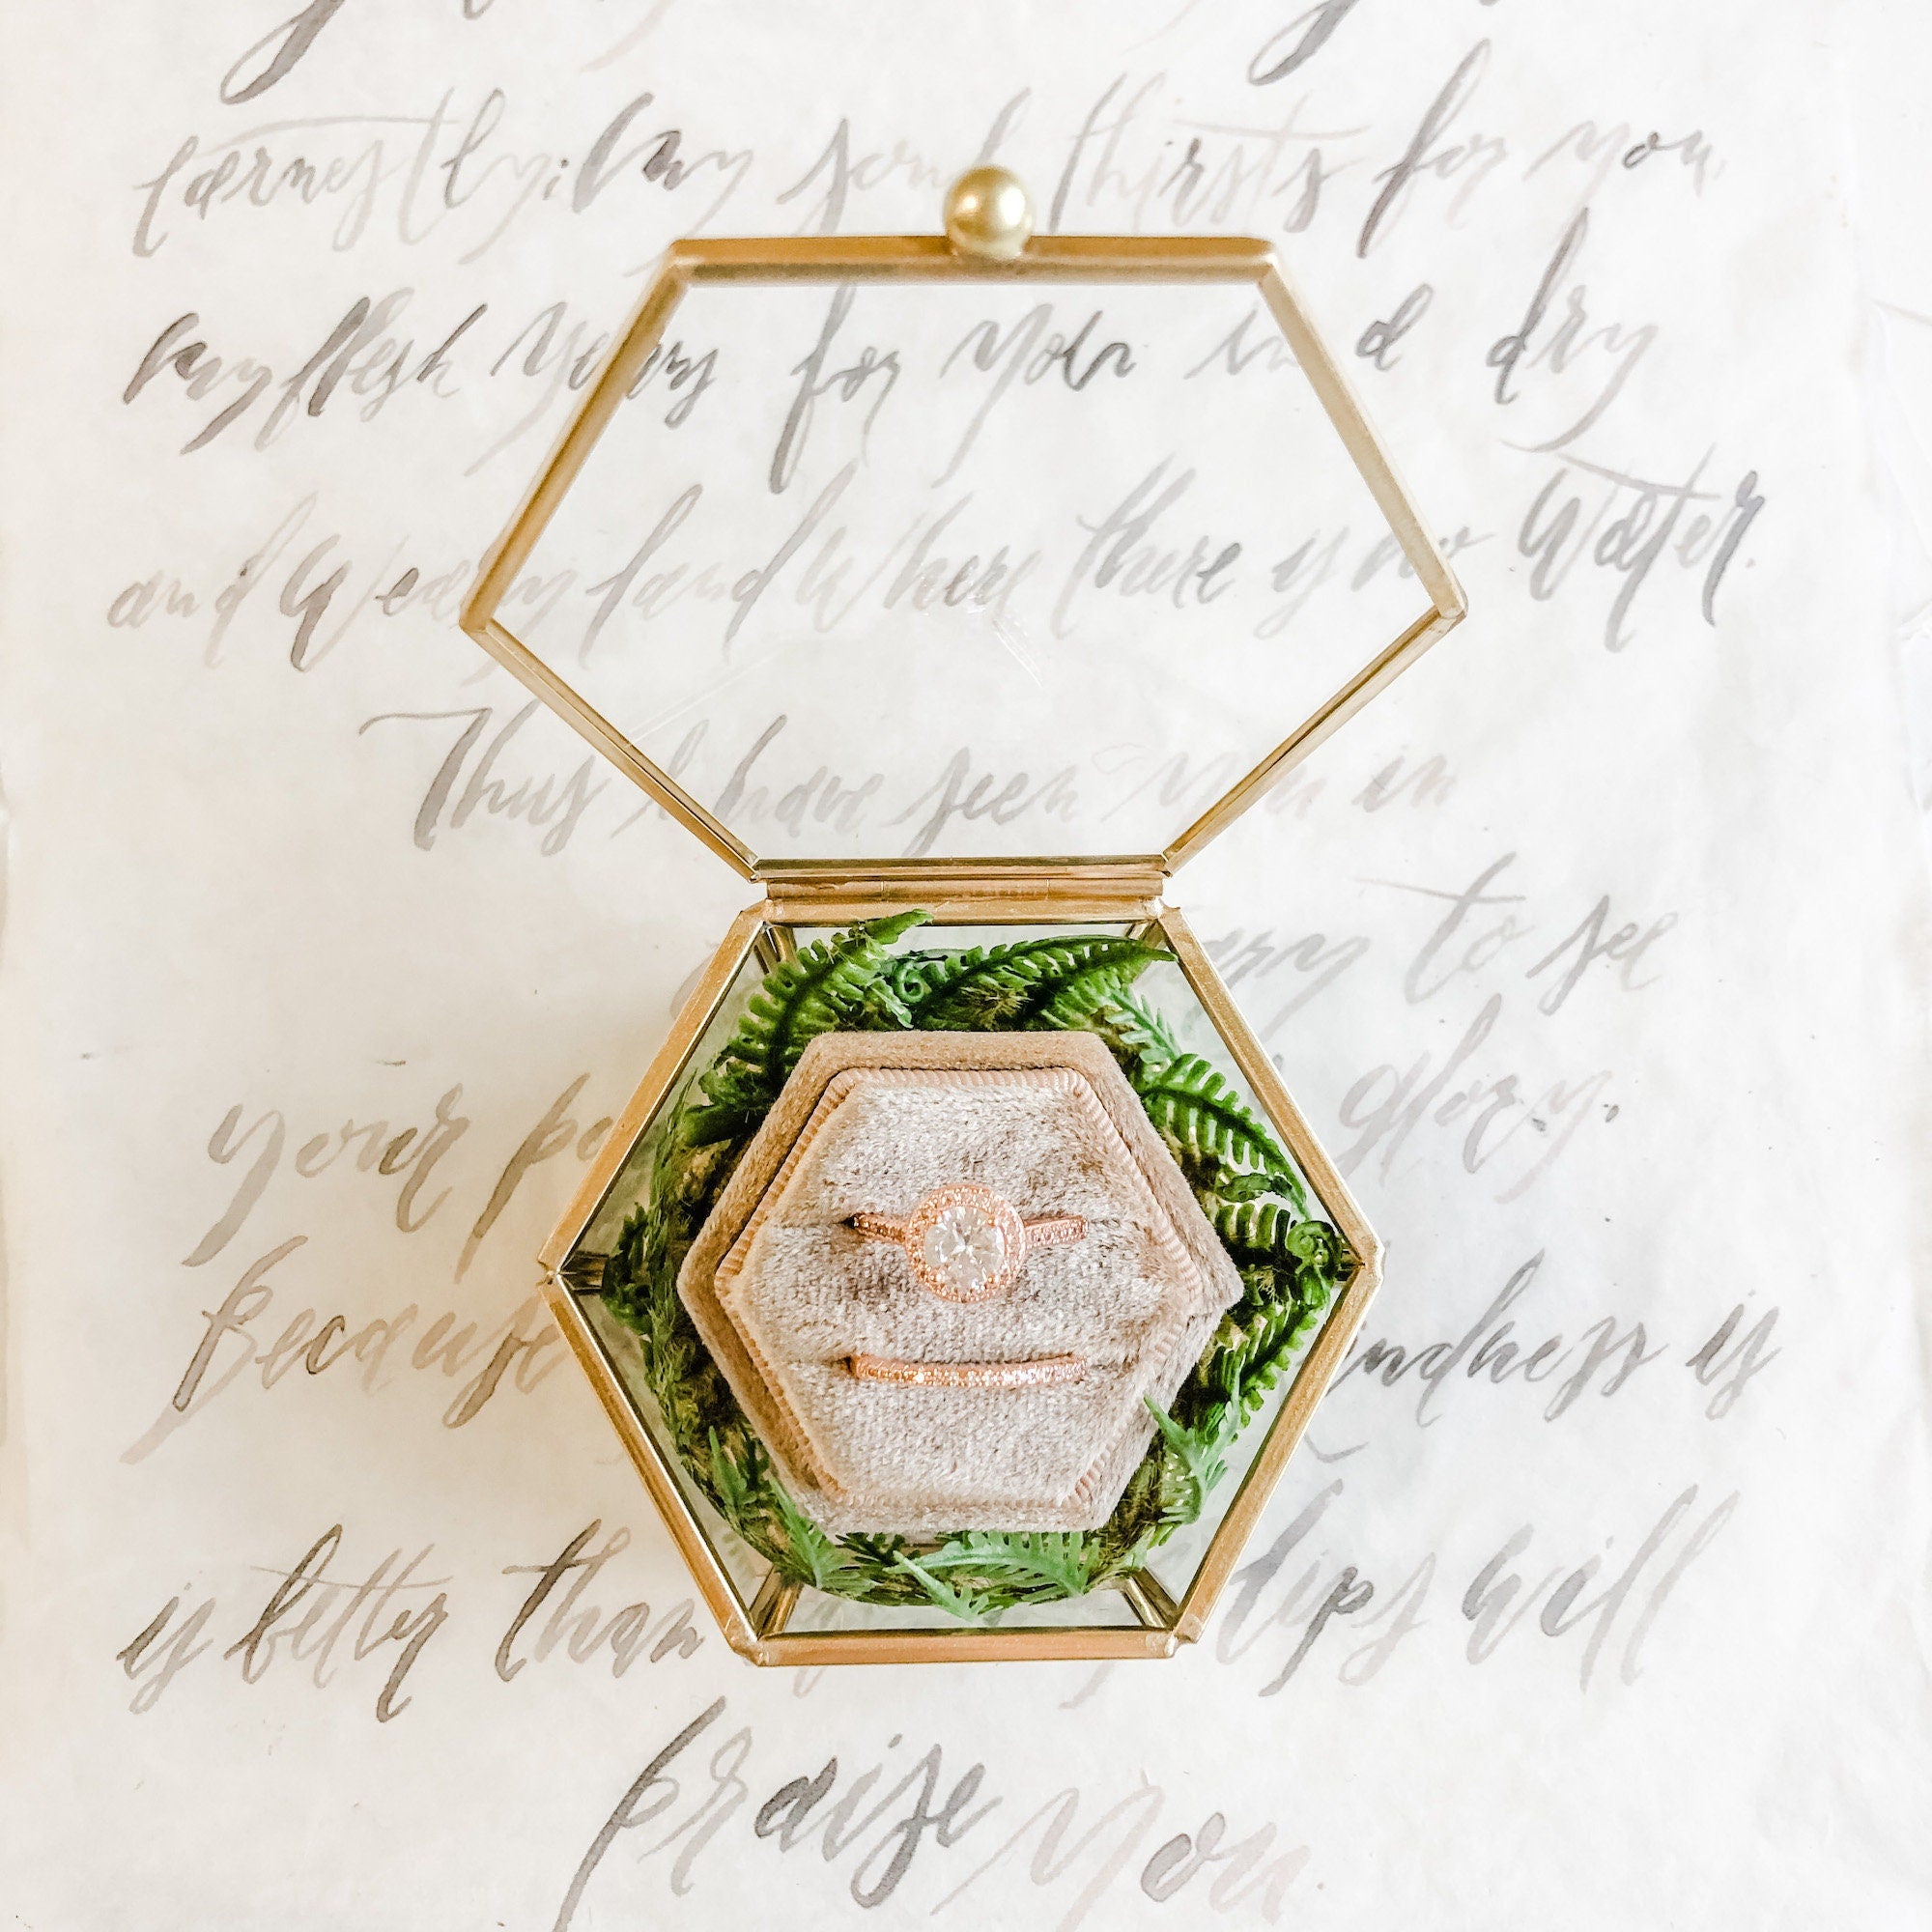 Earnestly; My soul thirsts for you,
my flesh yearns for you in a dry
and weary land where there is no water.
Thus I have seen you in
to see
your glory.
Because is
is better than lips will
praise you.